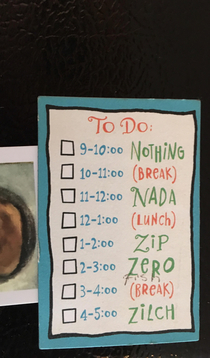 To Do:
9-10:00 NOTHING
10-11:00 (BREAK)
11-12:00 NADA
12-1:00 (LUNCH)
1-2:00 ZIP
2-3:00 ZERO
fish
3-4:00 (BREAK)
4-5:00 ZILCH